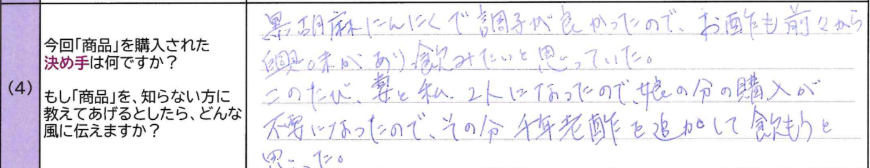 (4)
今回「商品」を購入された
決め手は何ですか？
もし「商品」を、知らない方に
教えてあげるとしたら、どんな
風に伝えますか？
黒胡麻にんにくで調子が良かったので、お酢も前々から
興味があり飲みたいと思っていた。
このたび、妻と私、2人になったので、娘の分の購入が
不要になったので、その分千年老酢を追加して飲もうと
思った。